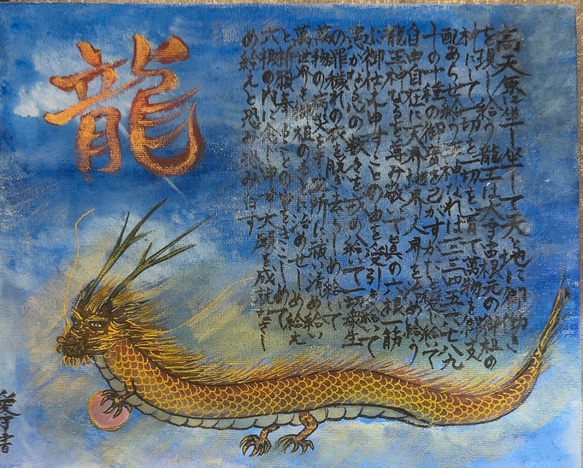 高天原に坐し坐して天と地に御働き
を現し給う龍王は大宇宙根元の御祖の
御使いにして一切を産み一切を育て萬物を御支
配あらせ給う王神なれば一二三四五六七八九
十の十種の御寶を己がすがたと変じ給いて
自由自在に天界地界人界を治め給う
龍王神なるを尊み敬いて眞の六根一筋
に御仕え申すことの由を受引き給いて
愚かなる心の数々を戒め給いて一切衆生
の罪穢れの衣を脱ぎ去らしめ給いて
萬物の病災をも立所に祓い清め給い
萬世界も御祖のもとに治めせしめ給え
と祈願奉ることの由をきこしめして
六根の内に念じ申す大願を成就なさし
め給えと恐み恐み白す
龍
書